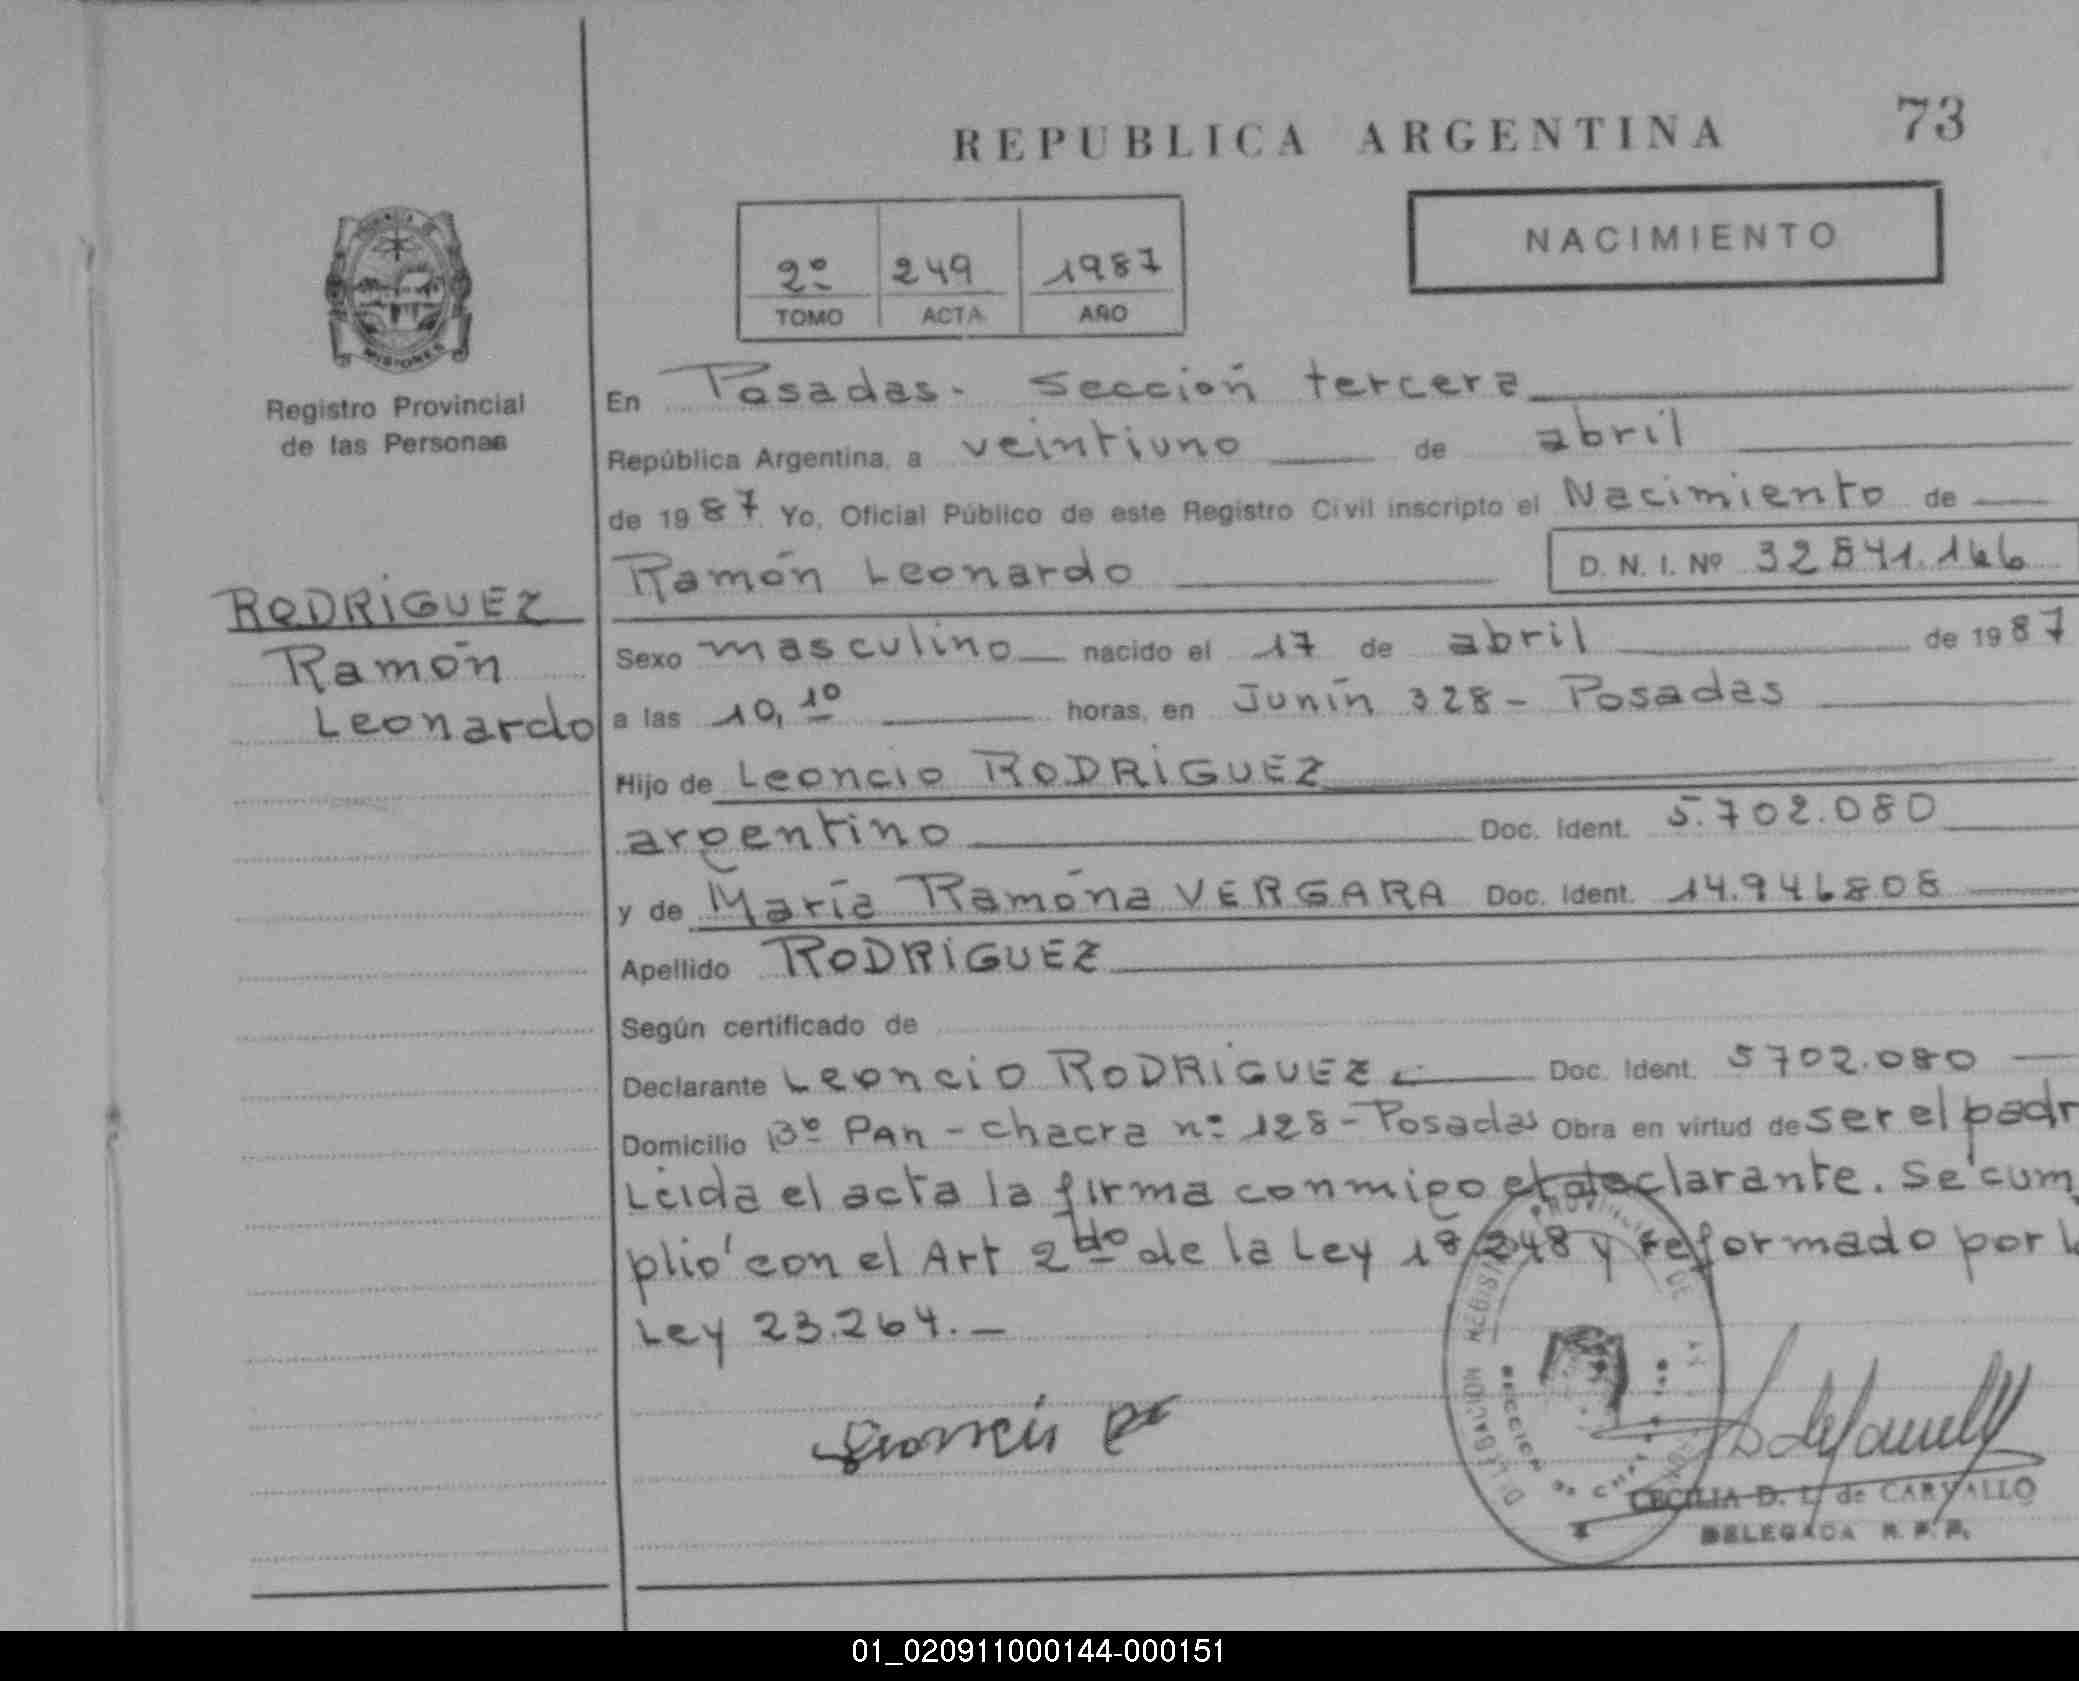 REPUBLICA ARGENTINA 73
NACIMIENTO
2º 249 1987
TOMO ACTA AÑO
MISIONES
Registro Provincial
de las Personas
RODRIGUEZ
Ramón
Leonardo
En Posadas. Sección tercera
República Argentina, a veintiuno de abril
de 1987. Yo, Oficial Público de este Registro Civil inscripto el Nacimiento de
Ramón Leonardo D. N. I. Nº 32841.166
Sexo masculino nacido el 17 de abril de 1987
a las 10,10 horas, en Junín 328 - Posadas
Hijo de Leoncio RODRIGUEZ
argentino Doc. Ident. 5.702.080
y de María Ramona VERGARA Doc. Ident. 14.946808
Apellido RODRIGUEZ
Según certificado de
Declarante Leoncio RODRIGUEZ Doc. Ident. 5702.080
Domicilio Bº PAn - chacra nº 128 - Posadas Obra en virtud de ser el padr
Leida el acta la firma conmigo el declarante. Se cum
plió con el Art 2do de la Ley 18248 y reformado por l
Ley 23.264. -
DELEGACION
CECILIA D. L. de CARVALLO
DELEGADA R. P. P.
01_020911000144-000151